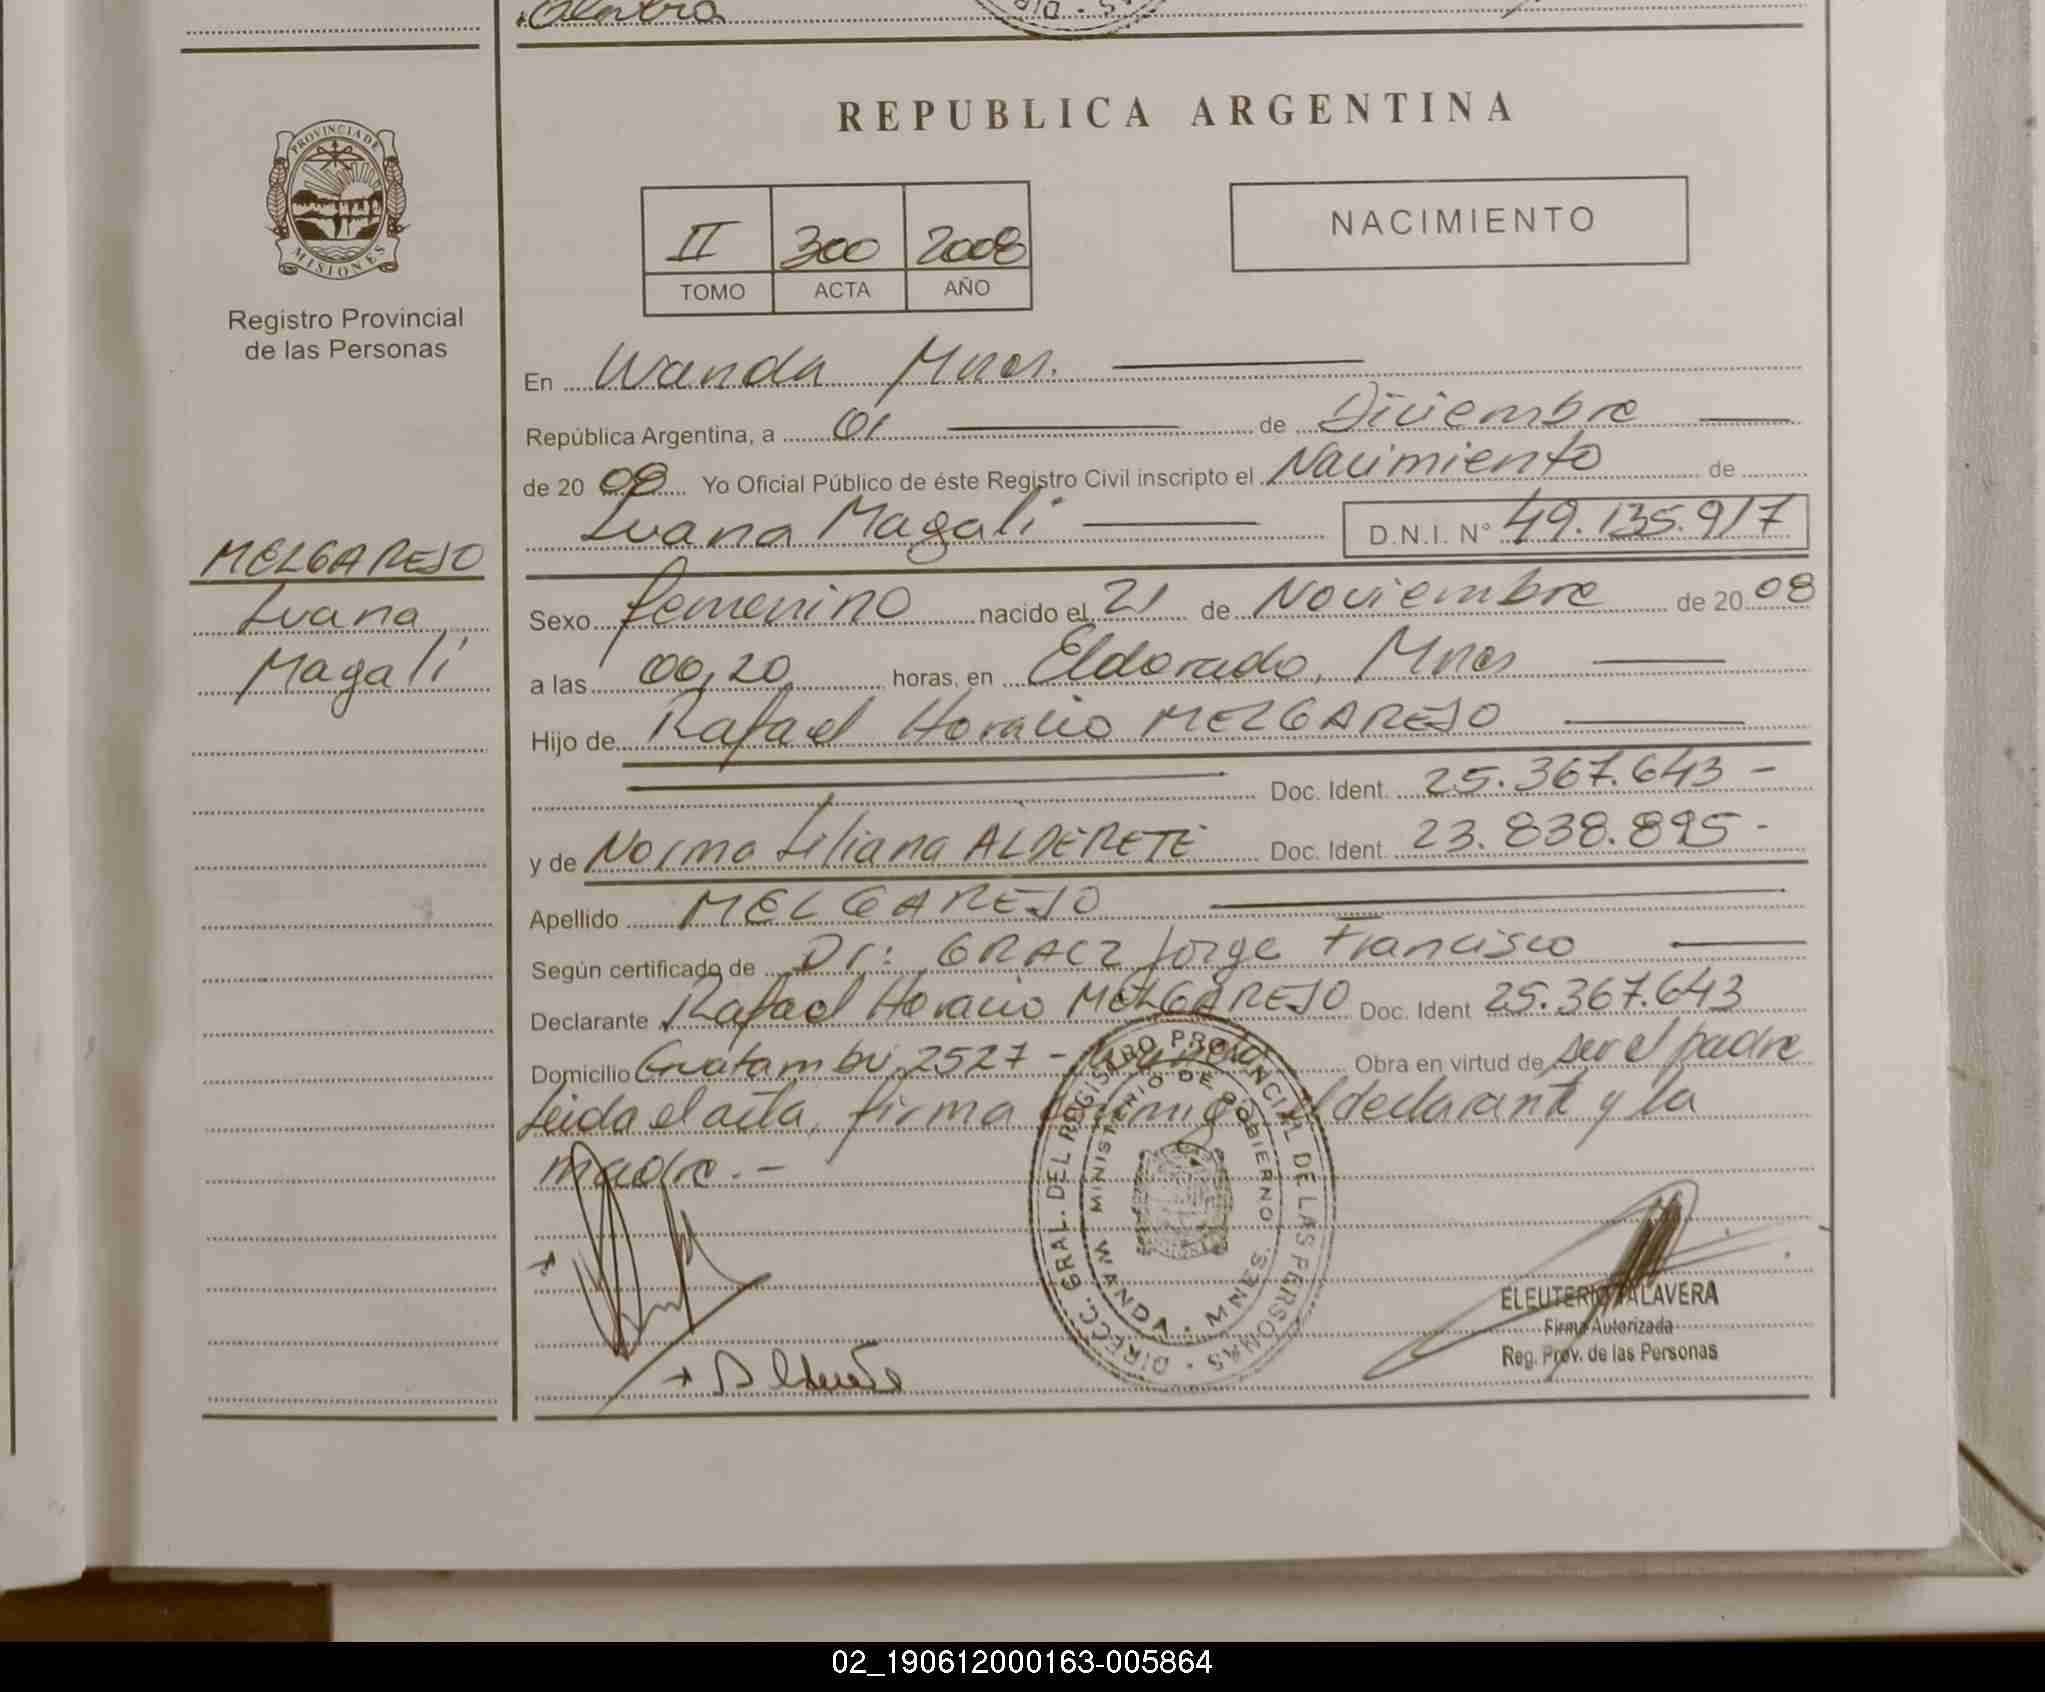 REPUBLICA ARGENTINA
PROVINCIA DE MISIONES
Registro Provincial
de las Personas
II 300 2008
TOMO ACTA AÑO
NACIMIENTO
En Wanda Mnes.
República Argentina, a 01 de Diciembre
de 20 08 Yo Oficial Público de éste Registro Civil inscripto el Nacimiento de
Luana Magali D.N.I. N° 49.135.917
MELGAREJO
Luana
Magali
Sexo femenino nacido el 21 de Noviembre de 20 08
a las 00,20 horas, en Eldorado, Mnes
Hijo de Rafael Horacio MELGAREJO
Doc. Ident. 25.367.643 -
y de Norma Liliana ALDERETE Doc. Ident. 23.838.895 -
Apellido MELGAREJO
Según certificado de Dr: GRACZ Jorge Francisco
Declarante Rafael Horacio MELGAREJO Doc. Ident 25.367.643
Domicilio Guatambú 2527 - Obra en virtud de ser el padre
Leida el acta, firma conmigo el declarante y la
madre. -
DIRECC. GRAL. DEL REGISTRO PROVINCIAL DE LAS PERSONAS
MINISTERIO DE GOBIERNO
WANDA - MNES.
ELEUTERIO TALAVERA
Firma Autorizada
Reg. Prov. de las Personas
02_190612000163-005864